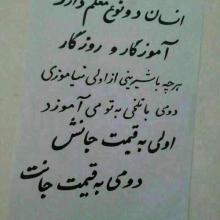 انسان دو نوع معلم دارد
آموزگار و روزگار
هرچه با شیرینی از اولی نیاموزی
دومی با تلخی به تو می آموزد
اولی به قیمت جانش
دومی به قیمت جانت